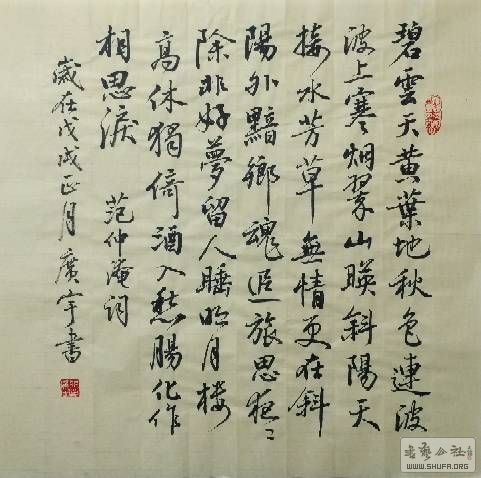 碧雲天黃葉地秋色連波
波上寒烟翠山暎斜陽天
接水芳草無情更在斜
陽外黯鄉魂追旅思夜〻
除非好夢留人睡明月樓
高休獨倚酒入愁腸化作
相思淚 范仲淹詞
歲在戊戌正月廣宇書
书艺公社
WWW.SHUFA.ORG